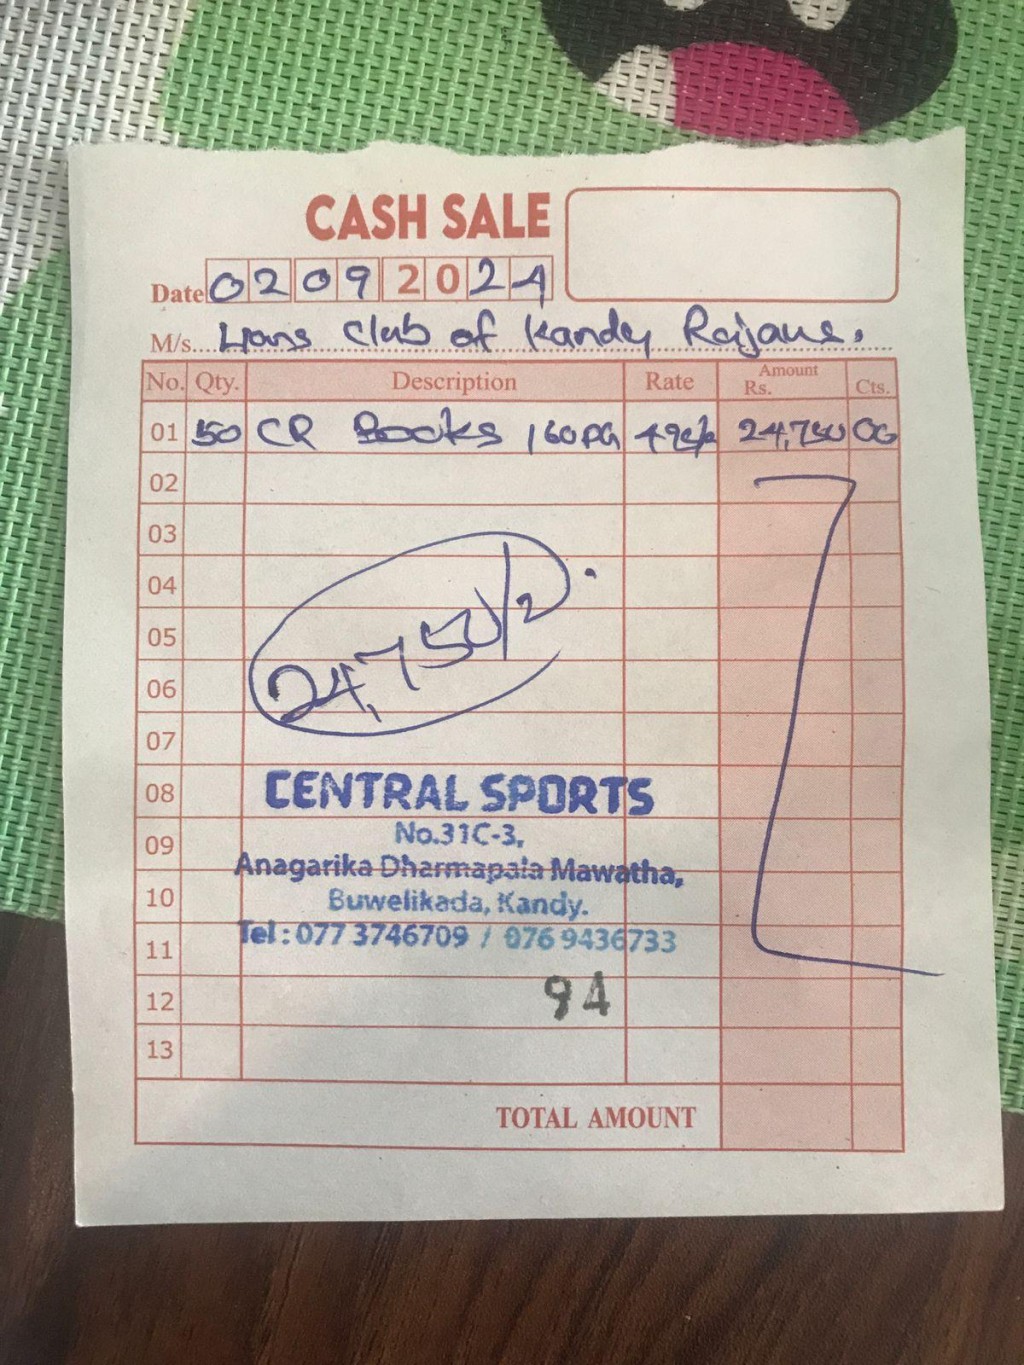 CASH SALE
Date 02092024
M/s. Lions Club of Kandy Rajans.
No. Qty. Description Rate Amount Rs. Cts.
01 50 CR Books 160PG 495/= 24,750 00
02
03
04
24,750/=
05
06
07
08
CENTRAL SPORTS
09
No.31C-3,
Anagarika Dharmapala Mawatha,
10
Buwelikada, Kandy.
11
Tel : 077 3746709 / 076 9436733
12
94
13
TOTAL AMOUNT